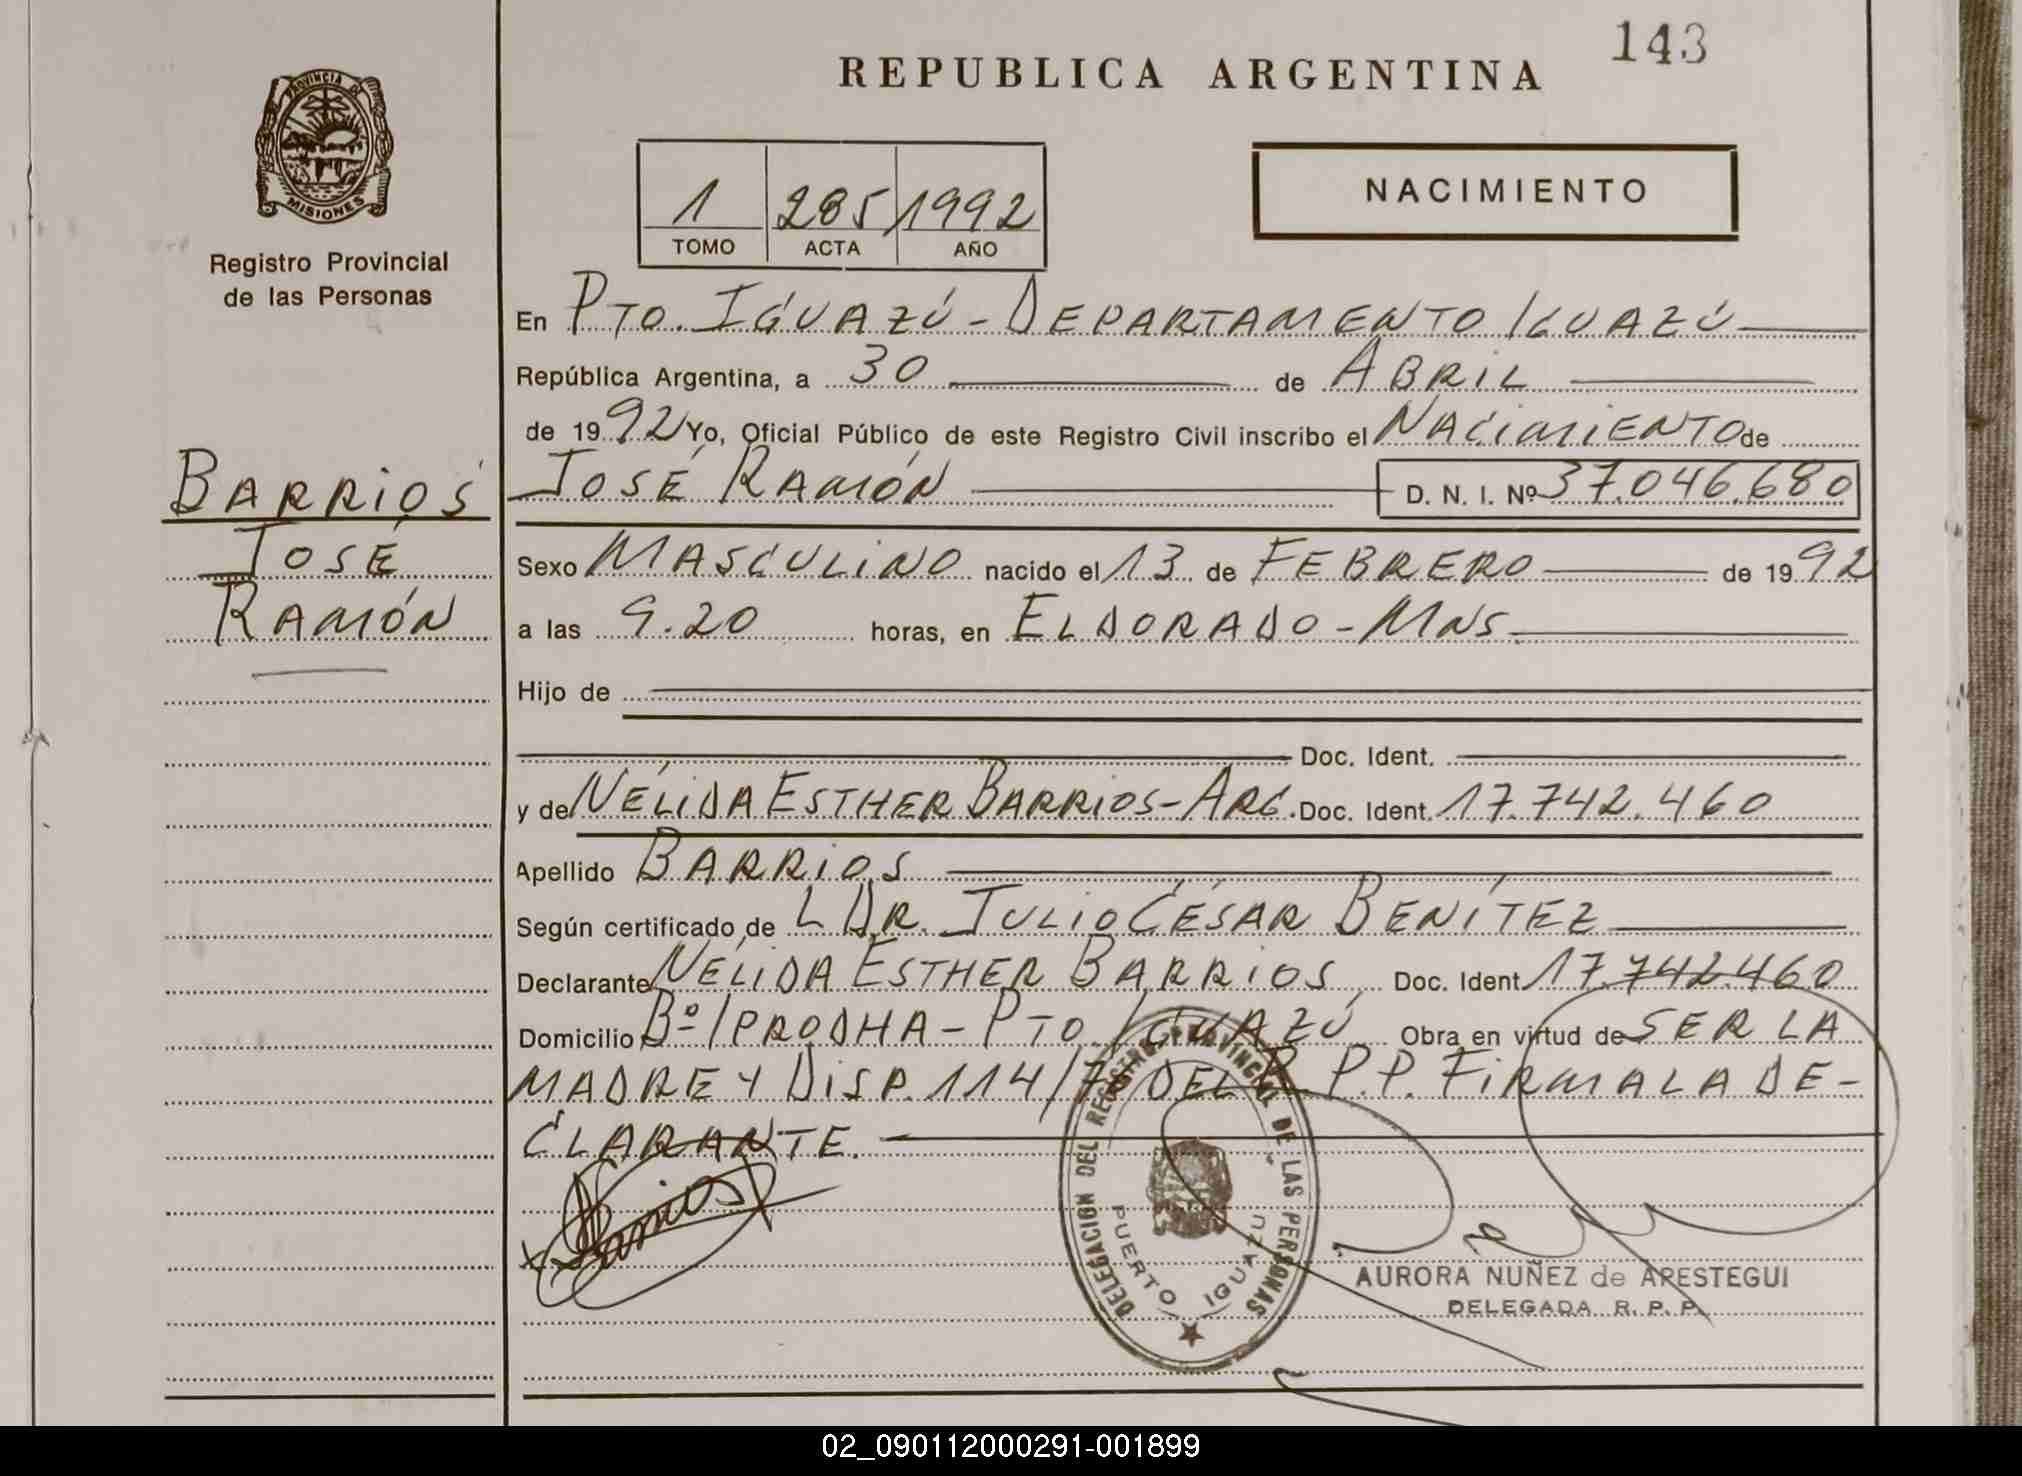 143
REPUBLICA ARGENTINA
PROVINCIA DE
MISIONES
Registro Provincial
de las Personas
1 285 1992
TOMO ACTA AÑO
NACIMIENTO
En PTO. IGUAZÚ - DEPARTAMENTO IGUAZÚ
República Argentina, a 30 de ABRIL
de 1992 Yo, Oficial Público de este Registro Civil inscribo el NACIMIENTO de
BARRIOS
JOSÉ
RAMÓN
JOSÉ RAMÓN D. N. I. Nº 37.046.680
Sexo MASCULINO nacido el 13 de FEBRERO de 1992
a las 9.20 horas, en ELDORADO - MNS.
Hijo de
Doc. Ident.
y de NÉLIDA ESTHER BARRIOS - ARG. Doc. Ident. 17.742.460
Apellido BARRIOS
Según certificado de L DR. JULIO CÉSAR BENÍTEZ
Declarante NÉLIDA ESTHER BARRIOS, Doc. Ident 17.742.460
Domicilio Bº IPRODHA - PTO. IGUAZÚ Obra en virtud de SER LA
MADRE Y DISP. 114/76 DEL R. P.P. FIRMA LA DE-
CLARANTE.
x Barrios
DELEGACION DEL REGISTRO PROVINCIAL DE LAS PERSONAS
PUERTO IGUAZU
AURORA NUÑEZ de ARESTEGUI
DELEGADA R. P. P.
02_090112000291-001899